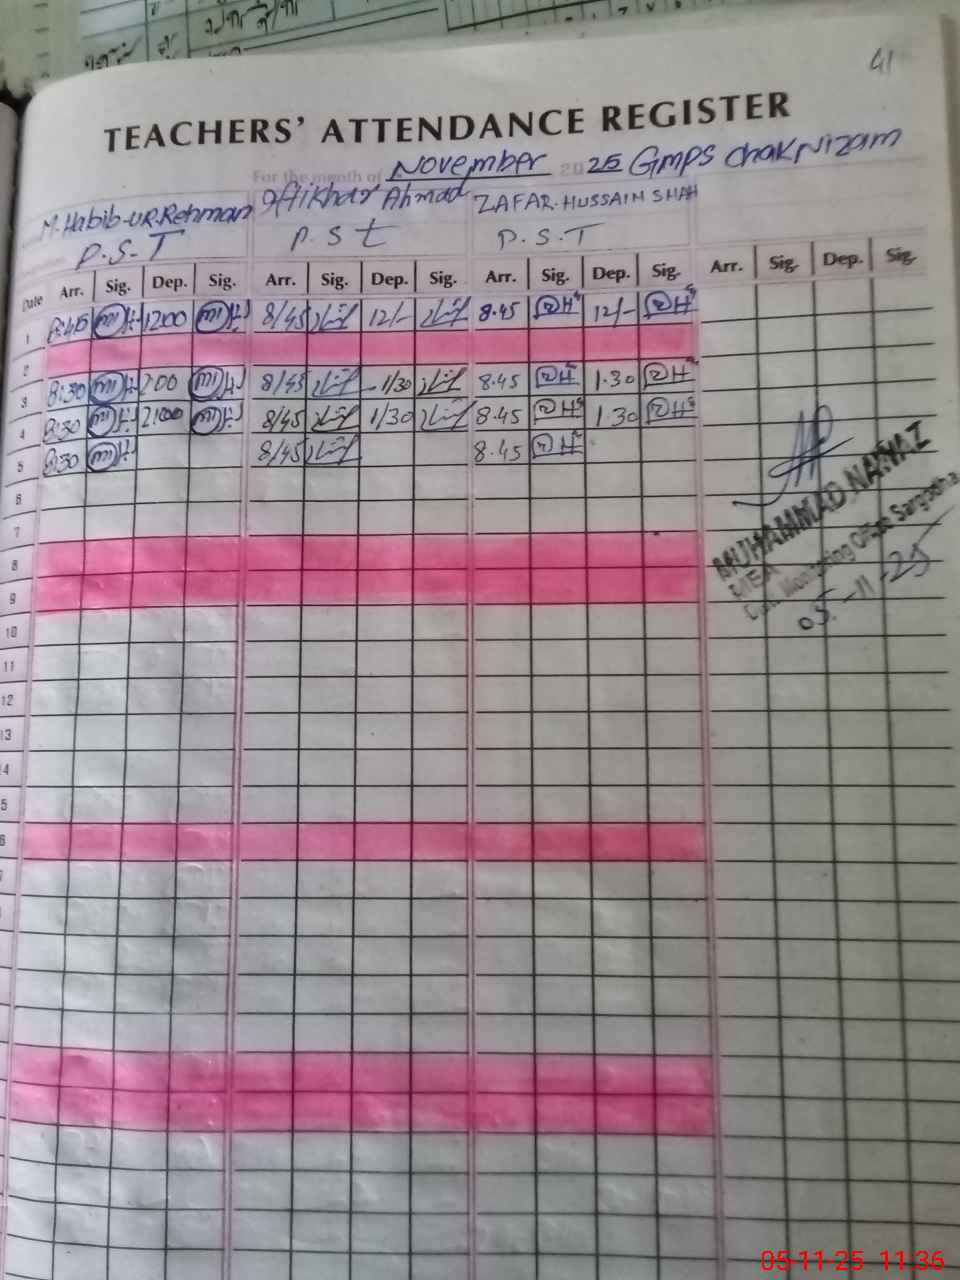 41
TEACHERS' ATTENDANCE REGISTER
For the month of November 2025 GMPS Chak Nizam
M. Habib-UR-Rehman Iftikhar Ahmad ZAFAR HUSSAIN SHAH
P.S.T P.S t P.S.T
Date Arr. Sig. Dep. Sig. Arr. Sig. Dep. Sig. Arr. Sig. Dep. Sig. Arr. Sig. Dep. Sig.
1 8:45 1200 8/45 12/- 8.45 12/-
2
3 8:30 2:00 8/45 1/30 8.45 1.30
4 8:30 2:00 8/45 1/30 8.45 1.30
5 8:30 8/45 8.45
6
7
8
9
10
11
12
13
14
5
6
MUHAMMAD NAWAZ
MEA
Monitoring Office Sargodha
05-11-25
05-11-25 11:36